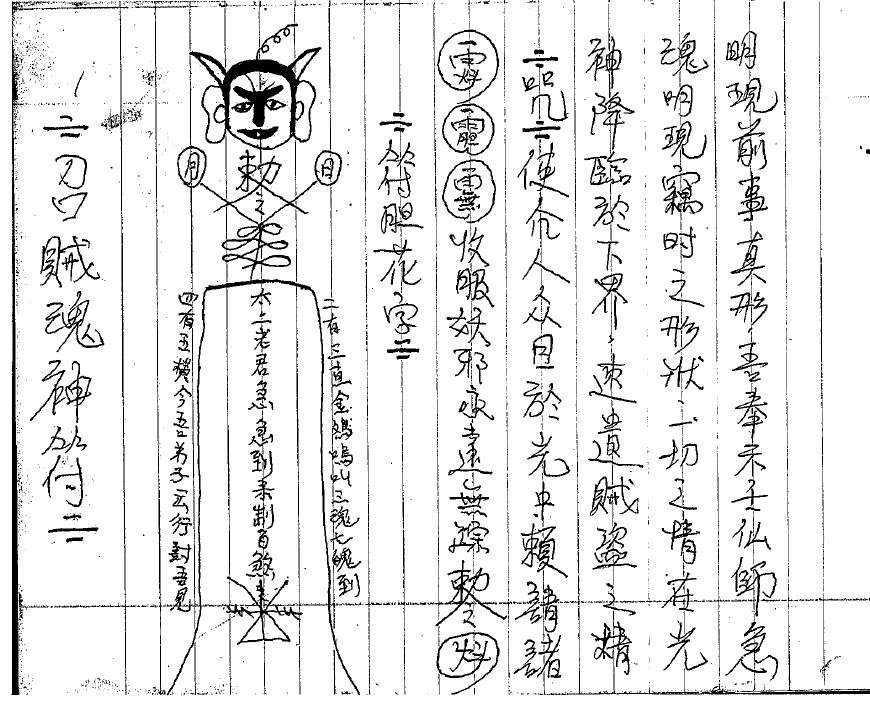 明現前事真形、吾奉 仙師急
魂明現竊时之形狀、一切之情在光
神降臨於下界、速追賊盜之精
二咒二使介人众目於光中賴請諸
收服妖邪永遠無踪敕令
二符胆花字二
日
月
敕令
二有三直金鸡鳴叫三魂七魄到
太上老君急急到来制百煞
四有五 今吾弟子一云行對吾見
二刀口賊魂神符二